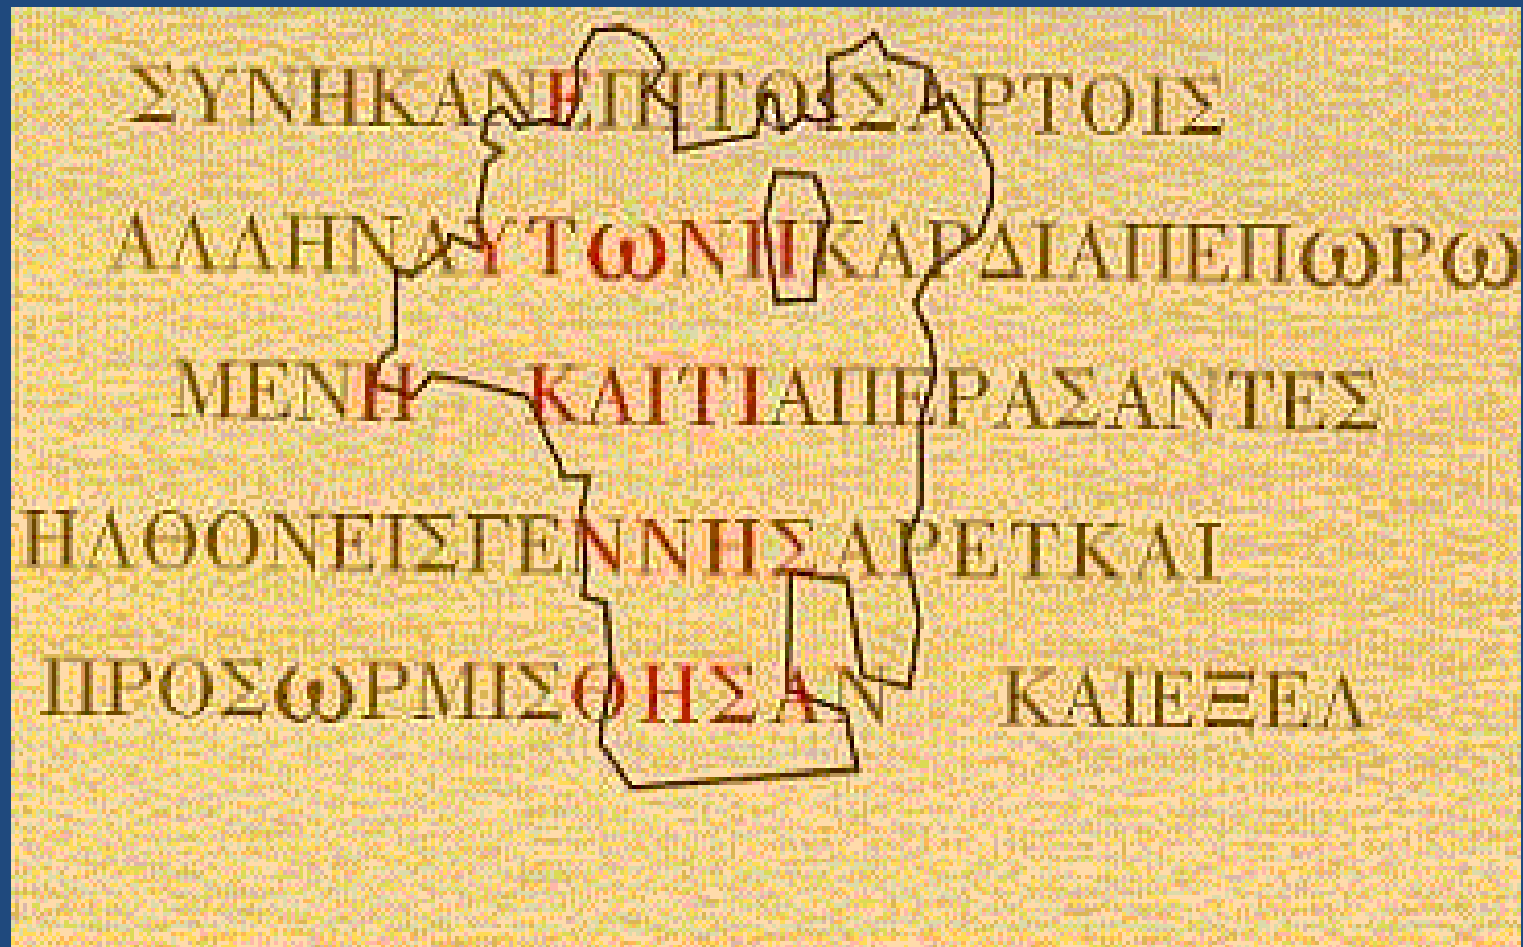 ΣΥΝΗΚΑΝΕΠΙΤΟΙΣΑΡΤΟΙΣ
ΑΛΛΗΝΑΥΤωΝΗΚΑΡΔΙΑΠΕΠωΡω
ΜΕΝΗ ΚΑΙΤΙΑΠΕΡΑΣΑΝΤΕΣ
ΗΛΘΟΝΕΙΣΓΕΝΝΗΣΑΡΕΤΚΑΙ
ΠΡΟΣωΡΜΙΣΘΗΣΑΝ ΚΑΙΕΞΕΛ